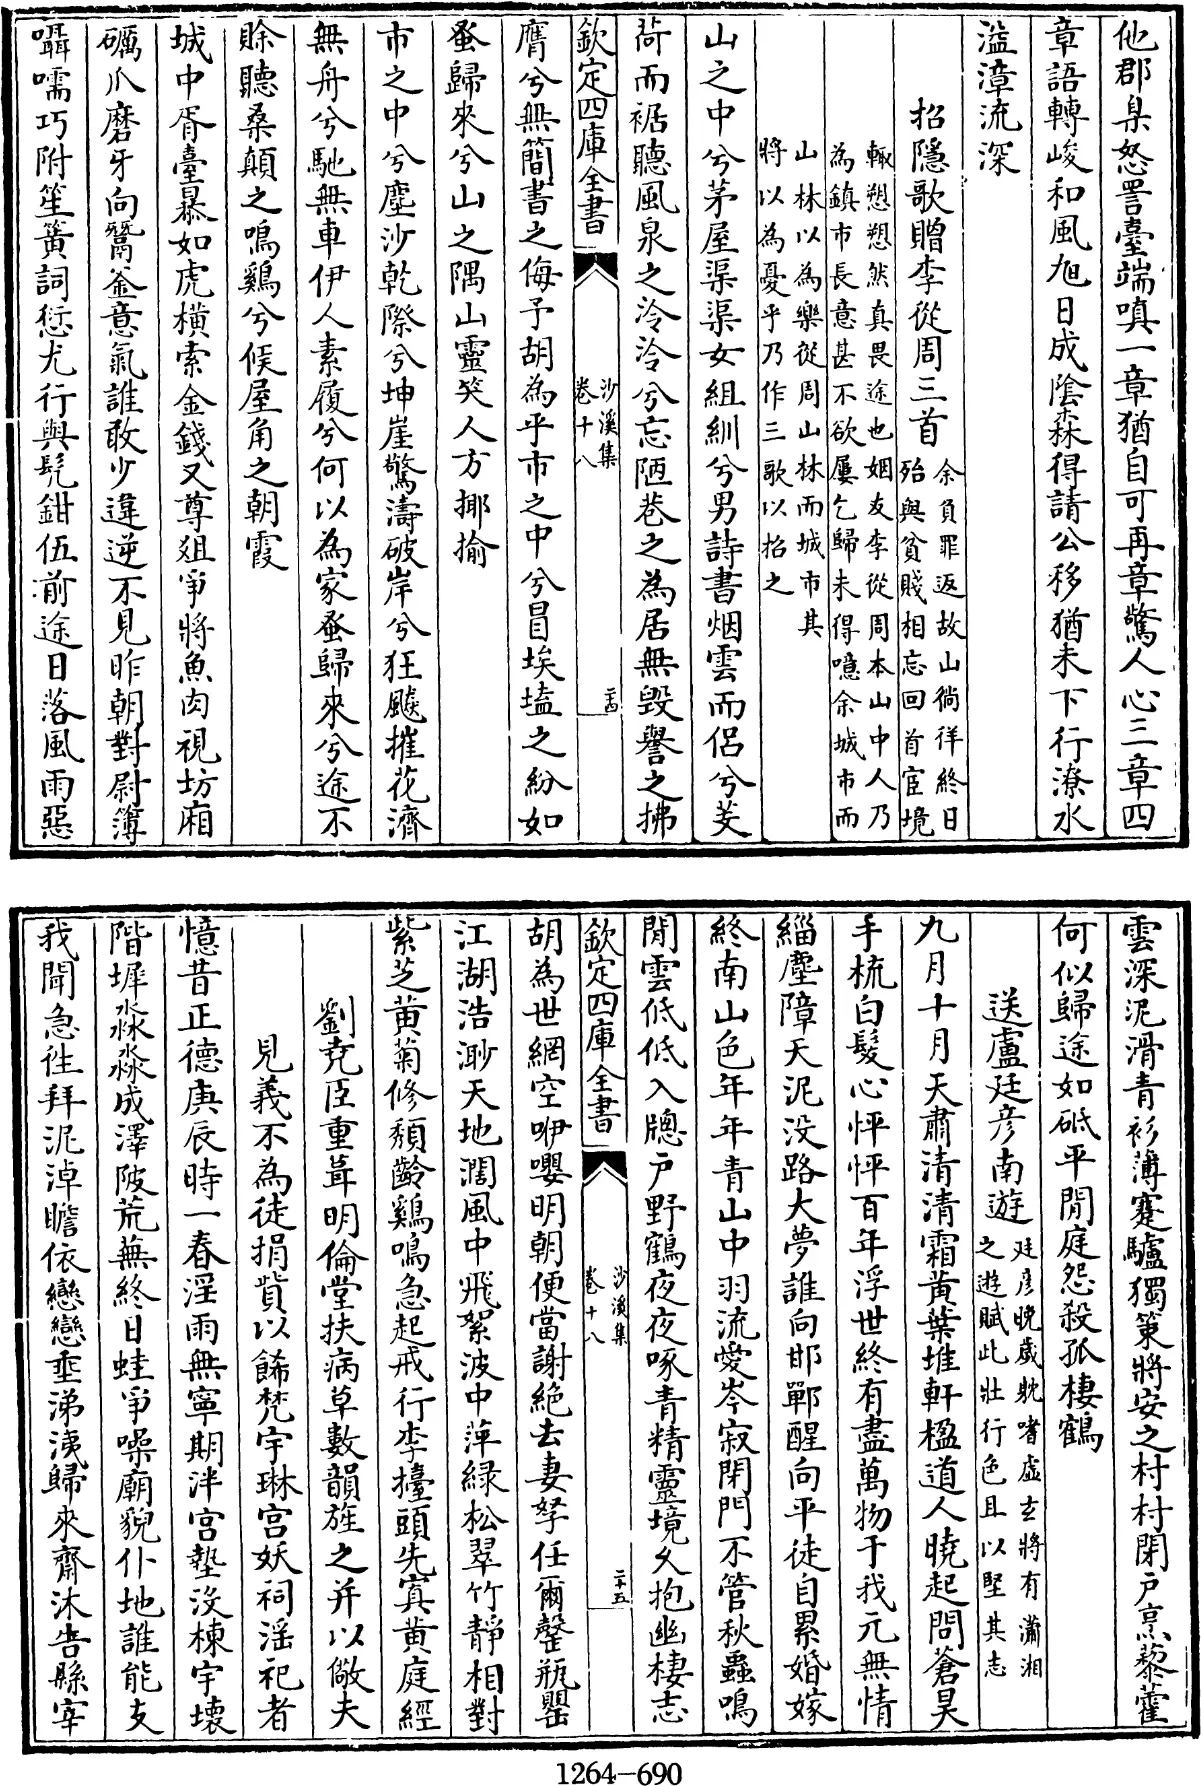 他郡臬怒詈臺端嗔一章猶自可再章驚人心三章四
章語轉峻和風旭日成陰森得請公移猶未下行潦水
溢漳流深
招隱歌贈李從周三首余負罪返故山徜徉終日
殆與貧賤相忘回首宦境
輙愬愬然真畏途也姻友李從周本山中人乃
為鎮市長意甚不欲屢乞歸未得噫余城市而
山林以為樂從周山林而城市其
將以為憂乎乃作三歌以招之
山之中兮茅屋渠渠女組紃兮男詩書烟雲而侣兮芰
荷而裾聽風泉之泠泠兮忘陋巷之為居無毁譽之拂
欽定四庫全書
沙溪集
卷十八
二十四
膺兮無簡書之侮予胡為乎市之中兮冒埃壒之紛如
蚤歸來兮山之隅山靈笑人方揶揄
市之中兮塵沙乾際兮坤崖驚濤破岸兮狂飈摧花濟
無舟兮馳無車伊人素履兮何以為家蚤歸來兮途不
賒聽桑顛之鳴鷄兮候屋角之朝霞
城中胥臺暴如虎横索金錢又尊俎爭將魚肉視坊廂
礪爪磨牙向鬵釜意氣誰敢少違逆不見昨朝對尉簿
囁嚅巧附笙簧詞愆尤行與髠鉗伍前途日落風雨惡
雲深泥滑青衫薄蹇驢獨策將安之村村閉户烹藜藿
何似歸途如砥平閒庭怨殺孤棲鶴
送盧廷彦南遊廷彦晚歲躭嗜虛玄將有瀟湘
之遊賦此壯行色且以堅其志
九月十月天肅清清霜黄葉堆軒楹道人曉起問蒼昊
手梳白髮心怦怦百年浮世終有盡萬物于我元無情
緇塵障天泥没路大夢誰向邯鄲醒向平徒自累婚嫁
終南山色年年青山中羽流愛岑寂閉門不管秋蟲鳴
閒雲低低入牕户野鶴夜夜啄青精靈境久抱幽棲志
欽定四庫全書
沙溪集
卷十八
二十五
胡為世網空咿嚶明朝便當謝絶去妻孥任爾罄瓶罌
江湖浩渺天地濶風中飛絮波中萍緑松翠竹靜相對
紫芝黄菊修頽齡鷄鳴急起戒行李擡頭先寘黄庭經
劉堯臣重葺明倫堂扶病草數韻旌之并以儆夫
見義不為徒捐貲以餙梵宇琳宫妖祠淫祀者
憶昔正德庚辰時一春淫雨無寧期泮宫墊没棟宇壞
階墀淼淼成澤陂荒蕪終日蛙爭噪廟貌仆地誰能支
我聞急往拜泥淖瞻依戀戀垂涕洟歸來齋沐告縣宰
1264-690